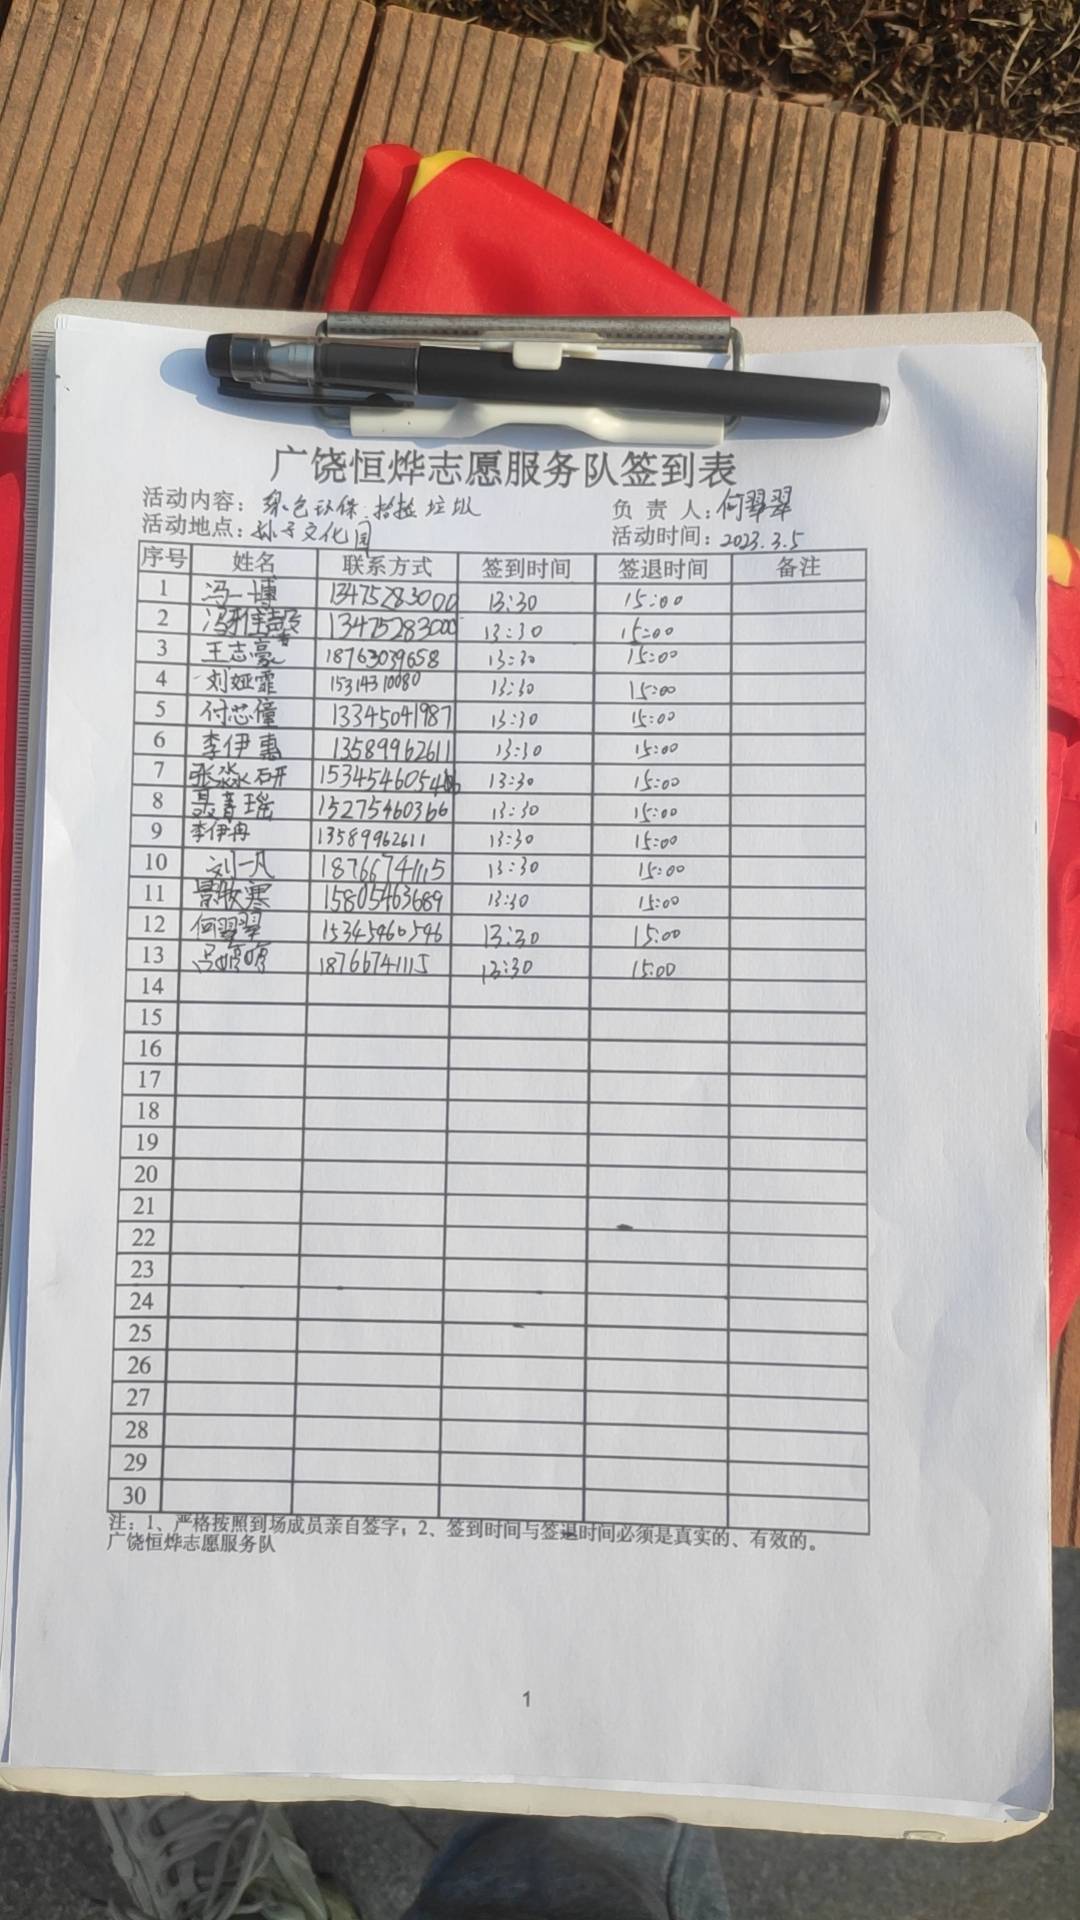 广饶恒烨志愿服务队签到表
活动内容：绿色环保.捡拾垃圾 负责人：何翠翠
活动地点：孙子文化园 活动时间：2023.3.5
序号 姓名 联系方式 签到时间 签退时间 备注
1 冯一博 13475283000 13:30 15:00
2 13475283000 13:30 15:00
3 王志豪 18763039658 13:30 15:00
4 刘娅霏 15314310080 13:30 15:00
5 付芯僮 13345041987 13:30 15:00
6 李伊惠 13589962611 13:30 15:00
7 张淼研 13:30 15:00
8 聂青瑶 15275460366 13:30 15:00
9 李伊冉 13589962611 13:30 15:00
10 刘一凡 18766741115 13:30 15:00
11 15805463689 13:30 15:00
12 何翠翠 15345460546 13:30 15:00
13 18766741115 13:30 15:00
14
15
16
17
18
19
20
21
22
23
24
25
26
27
28
29
30
注：1、严格按照到场成员亲自签字；2、签到时间与签退时间必须是真实的、有效的。
广饶恒烨志愿服务队
1